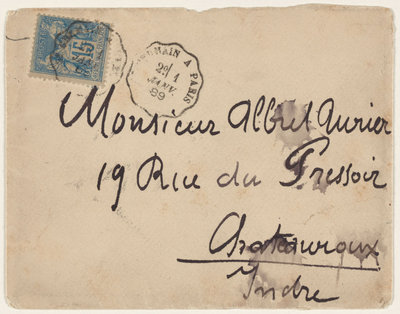 15
MAIN A PARIS
2E 1
JANV.
89
Monsieur Albert Aurier
19 Rue du Pressoir
Chateauroux
Indre